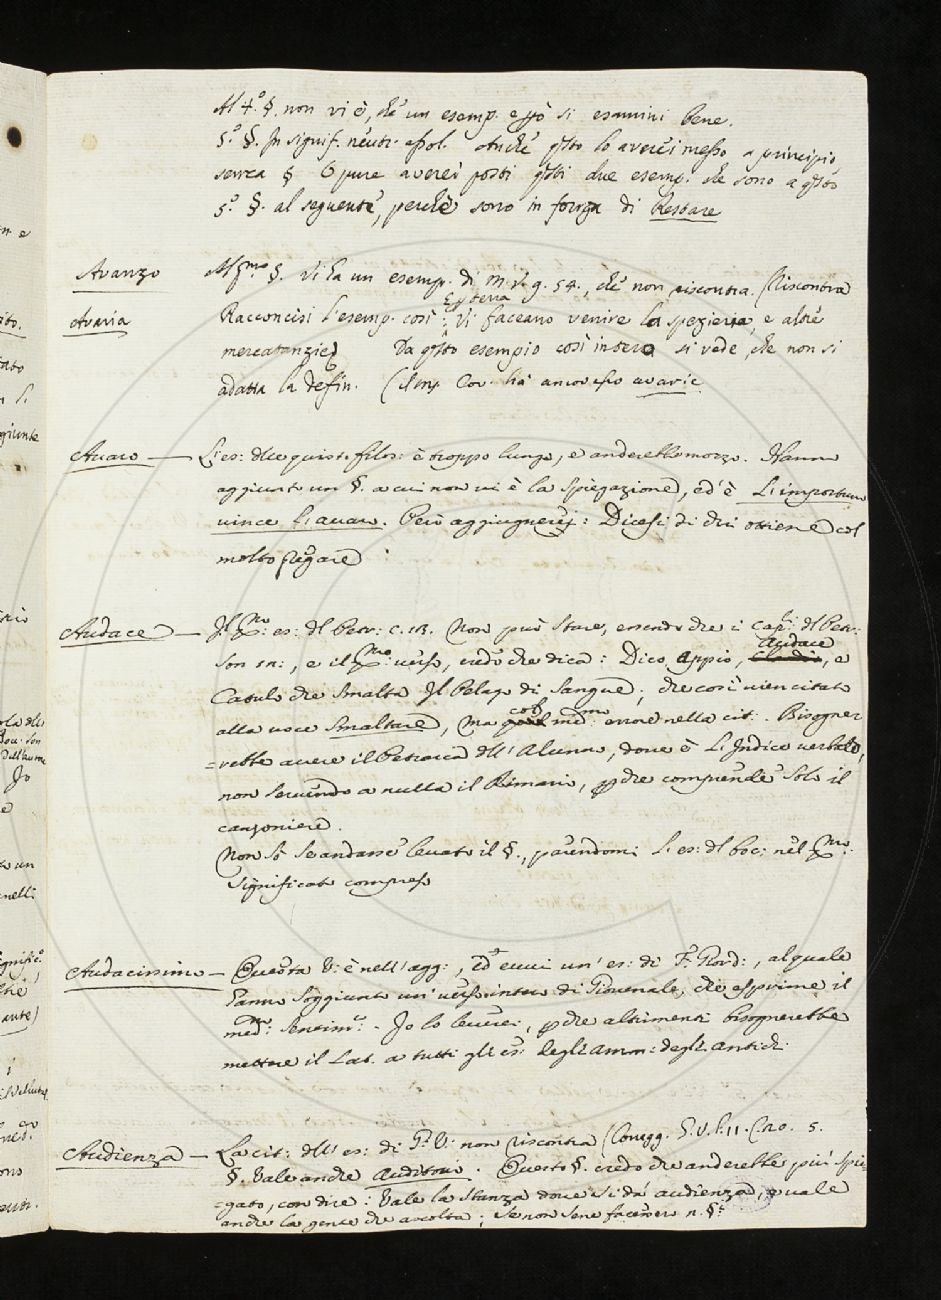 Al 4.° §. non vi è, che un esemp. e pò si esamini bene.
5.° §. In signif. neutr. assol. Anche qsto lo averei messo a principio
senza § O pure averei posti qsti due esemp. che sono a qsto
5.° §. al seguente, perchè sono in forza di Restare
Avanzo Al pmo §. Vi ha un esemp. di M.V. 9. 54., che non riscontra. (Riscontra
Avaria Racconcisi l'esemp. così: E p terra vi faceano venire la spezieria, e altre
mercatanzie Da qsto esempio così intero si vede, che non si
adatta la defin. (L'imp. Cov. ha ancor esso avarie
Avaro — L'es: dlle quisti: filos: è troppo lungo, e anderebbe mozzo. Hanno
aggiunto un §. a cui non vi è la spiegazione, ed è L'importuno
vince l'avaro. Però aggiugnerej: Dicesi di chi ottiene col
molto pregare
Audace — Il pmo: es: dl Petr: c. 18. Non può stare, essendo che i cap: dl Petr:
son 12:, e il pmo: verso, credo che dica: Dico Appio, Audace, e
Catulo che smalta Il pelago di sangue; che così vien citato
alla voce Smaltare, ma col medmo: errore nella cit:. Bisogner
=rebbe avere il Petrarca dll'Alunno, dove è L'Indice verbale,
non servendo a nulla il Rimario, pche comprende solo il
canzoniere.
Non sò se andasse levato il §., parendomi l'es: dl Boc: nel pmo:
significato compreso
Audacissimo — Questa V: è nell'agg:, ed evvi un'es: di Fr: Giord:, al quale
hanno soggiunto un'verso intero di Giovenale, che esprime il
medmo: sentimto:. Io lo leverei, pche altrimenti bisognerebbe
mettere il Lat. a tutti gli es: degli Amm: degli antichi:
Audienza — La cit: dll'es: di G: V: non riscontra (Corregg. G. V. l. 11. C. 20. 5.
§. Vale anche Auditorio. Questo §. credo che anderebbe più spie
=gato, con dire: Vale la stanza dove si dà audienza, e vale
anche la gente che ascolta; se non se ne facesse n. §: